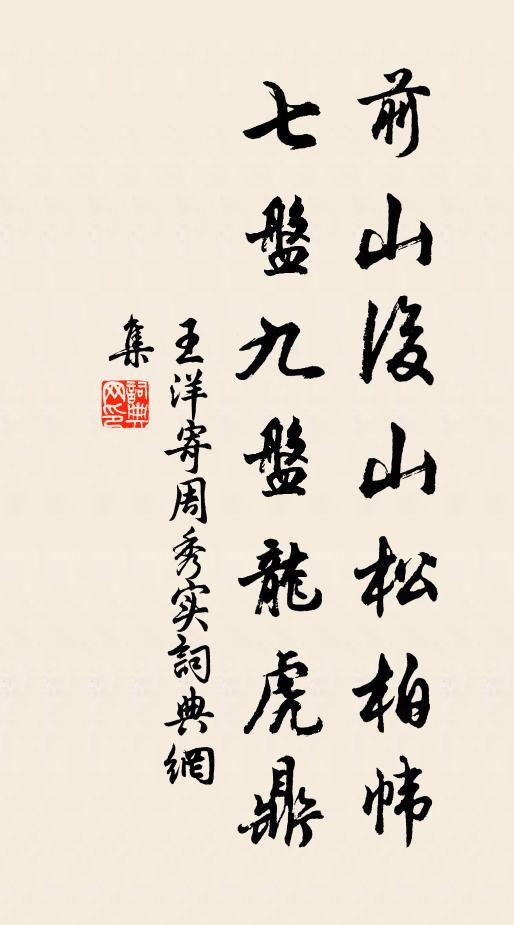 前山後山松柏幃
七盤九盤龍虎鼎
王洋寄周秀实詞典網
集
詞典网印